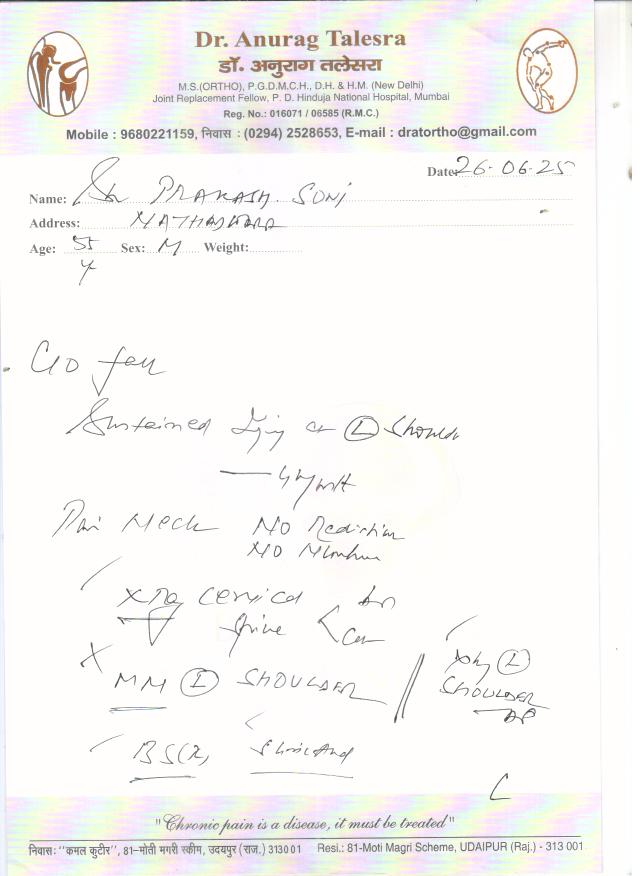 Dr. Anurag Talesra
डॉ. अनुराग तलेसरा
M.S.(ORTHO), P.G.D.M.C.H., D.H. & H.M. (New Delhi)
Joint Replacement Fellow, P. D. Hinduja National Hospital, Mumbai
Reg. No.: 016071 / 06585 (R.M.C.)
Mobile : 9680221159, निवास : (0294) 2528653, E-mail : dratortho@gmail.com
Date: 26-06-25
Name: PRAKASH SONI
Address:
Age: 55 Sex: M Weight:
y
C/O fall
Sustained Injury (L) Shoulder
Pain Neck NO Radiation
NO
Xray cervical AP
Spine
(L) SHOULDER
Xray (L)
SHOULDER
AP
"Chronic pain is a disease, it must be treated"
निवास: "कमल कुटीर", 81-मोती मगरी स्कीम, उदयपुर (राज.) 313001 Resi.: 81-Moti Magri Scheme, UDAIPUR (Raj.) - 313 001